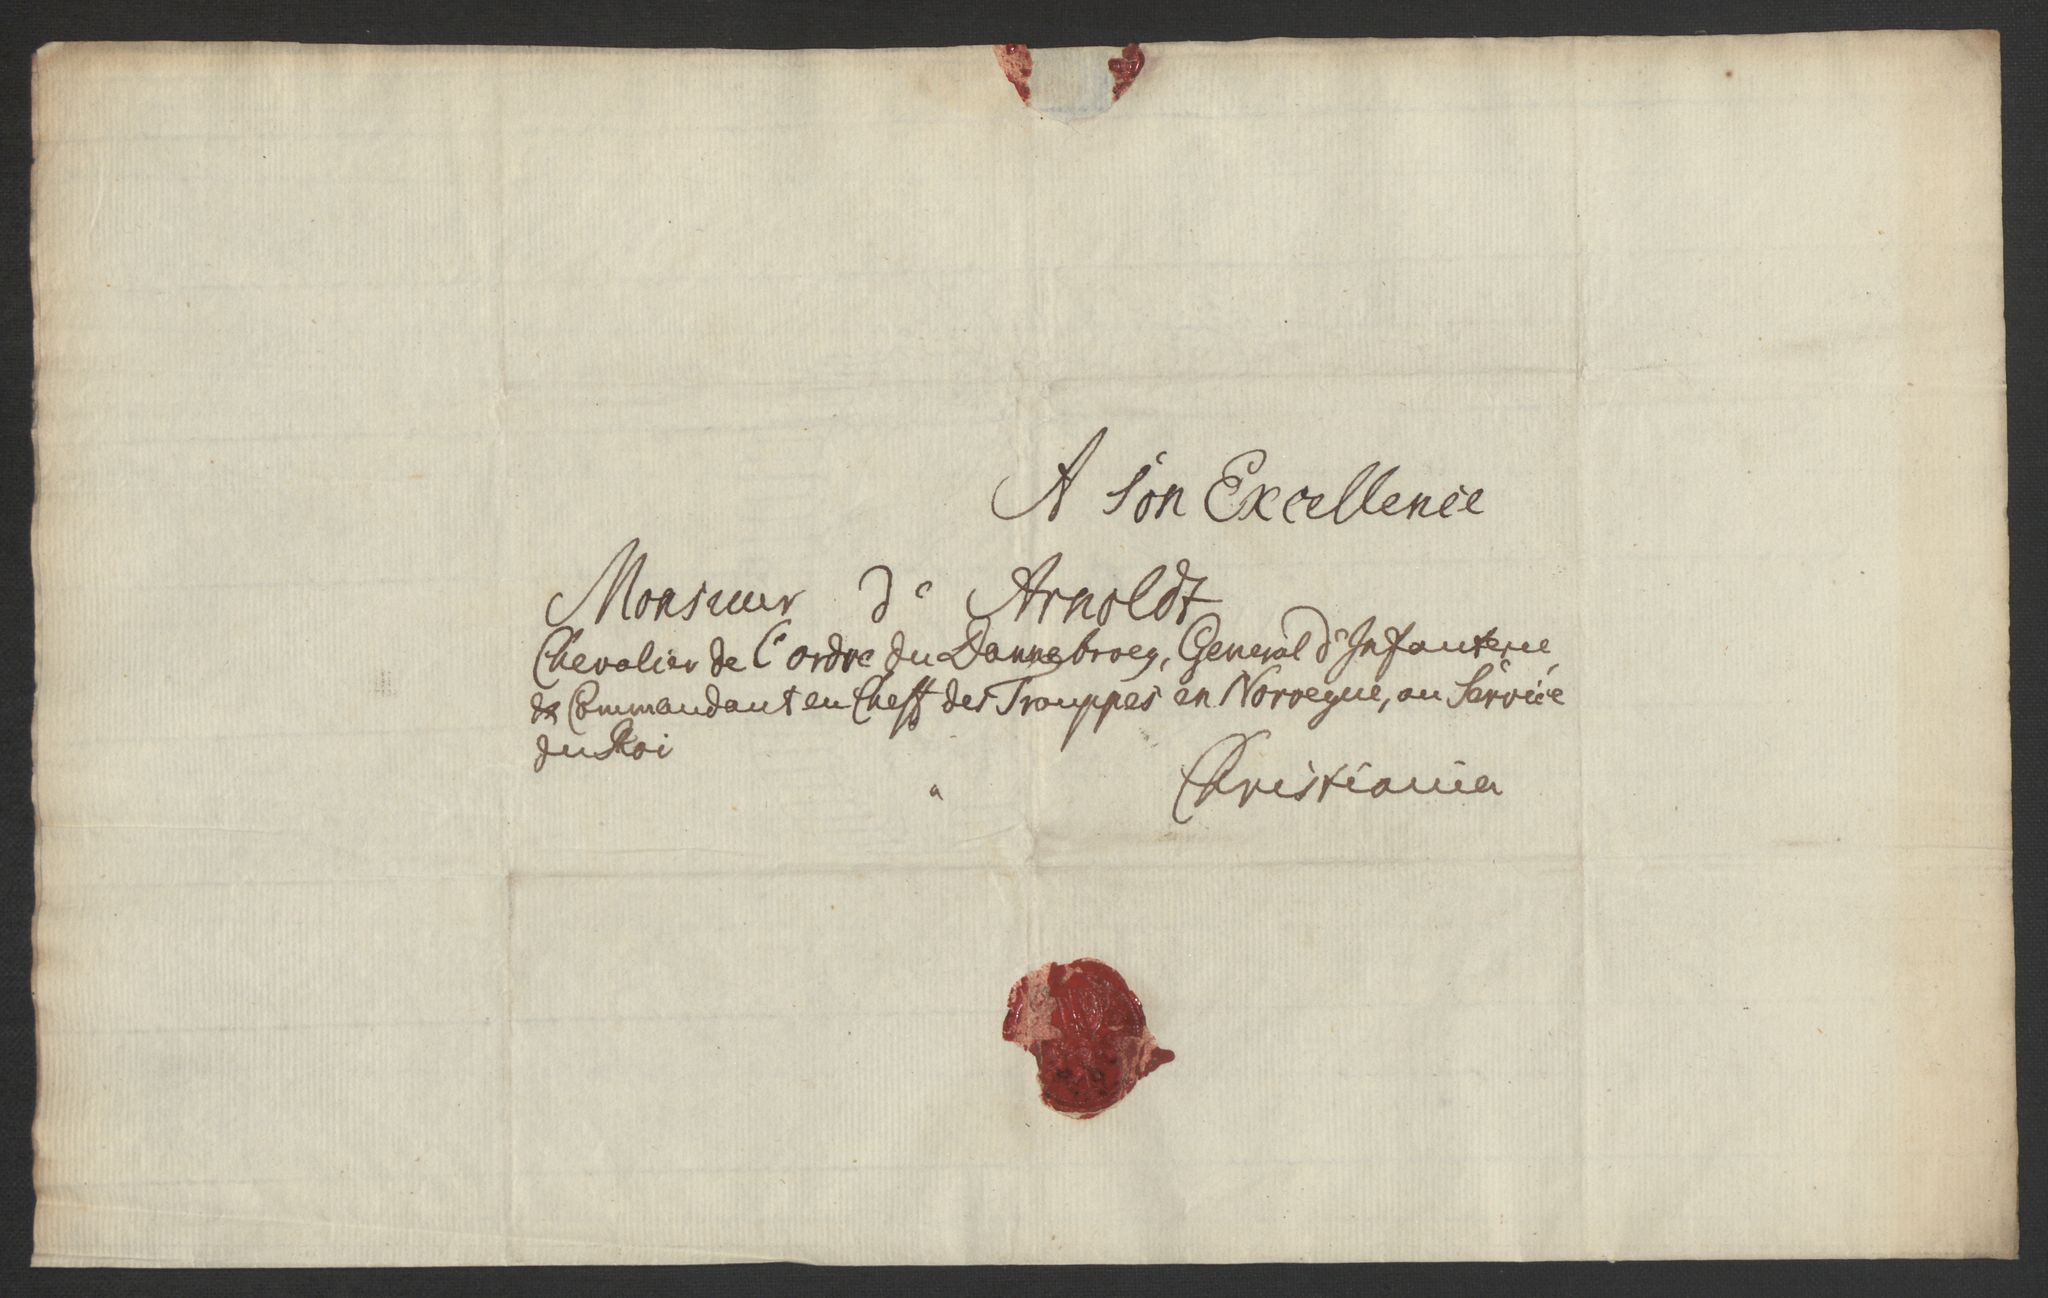 A Son Excellence
Monsieur d'Arnoldt
Chevalier de l'ordre du Dannebroeg, General d'Infanterie,
& Commandant en Cheff des Trouppes en Norvegue, au Service
du Roi
a Christiania